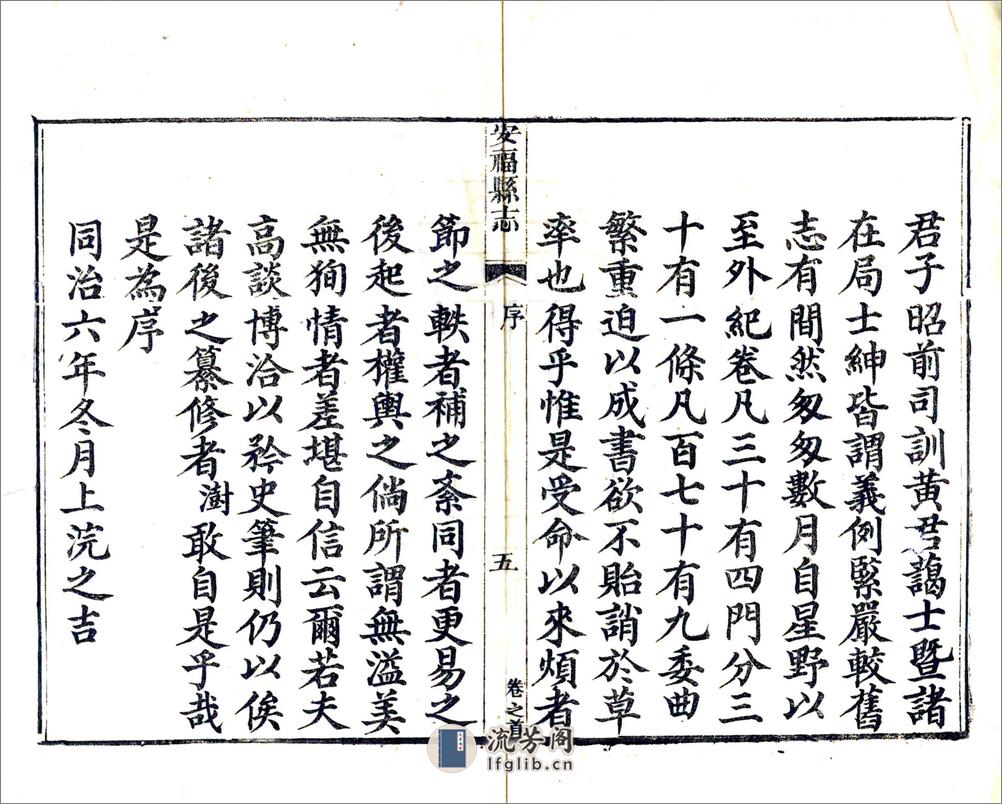 君子昭前司訓黄君藹士暨諸
在局士紳皆謂義例緊嚴較舊
志有間然匆匆數月自星野以
至外紀卷凡三十有四門分三
十有一條凡百七十有九委曲
繁重迫以成書欲不貽誚於草
率也得乎惟是受命以來煩者
安福縣志
序
五
卷之首
節之軼者補之紊同者更易之
後起者權輿之倘所謂無溢美
無狥情者差堪自信云爾若夫
高談博洽以矜史筆則仍以俟
諸後之纂修者澍敢自是乎哉
是為序
同治六年冬月上浣之吉
流芳阁
lfglib.cn